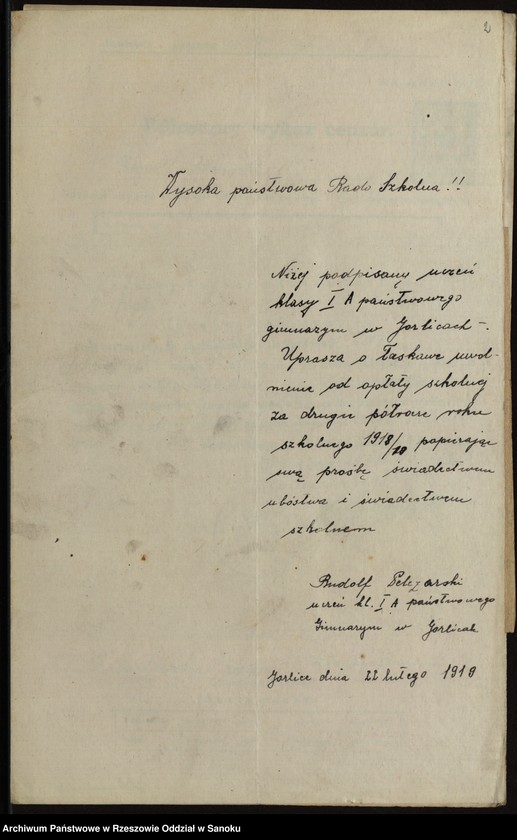 2
Wysoka państwowa Rado Szkolna!!
Niżej podpisany uczeń
klasy I A państwowego
gimnazym w Gorlicach -.
Uprasza o łaskawe uwol-
nienie od opłaty szkolnej
za drugie półrocze roku
szkolnego 1918/19 popierając
swą prośbę świadectwem
ubóstwa i świadectwem
szkolnem
Rudolf Pelczarski
uczeń kl. I A państwowego
Gimnazym w Gorlicach
Gorlice dnia 22 lutego 1919
Archiwum Państwowe w Rzeszowie Oddział w Sanoku